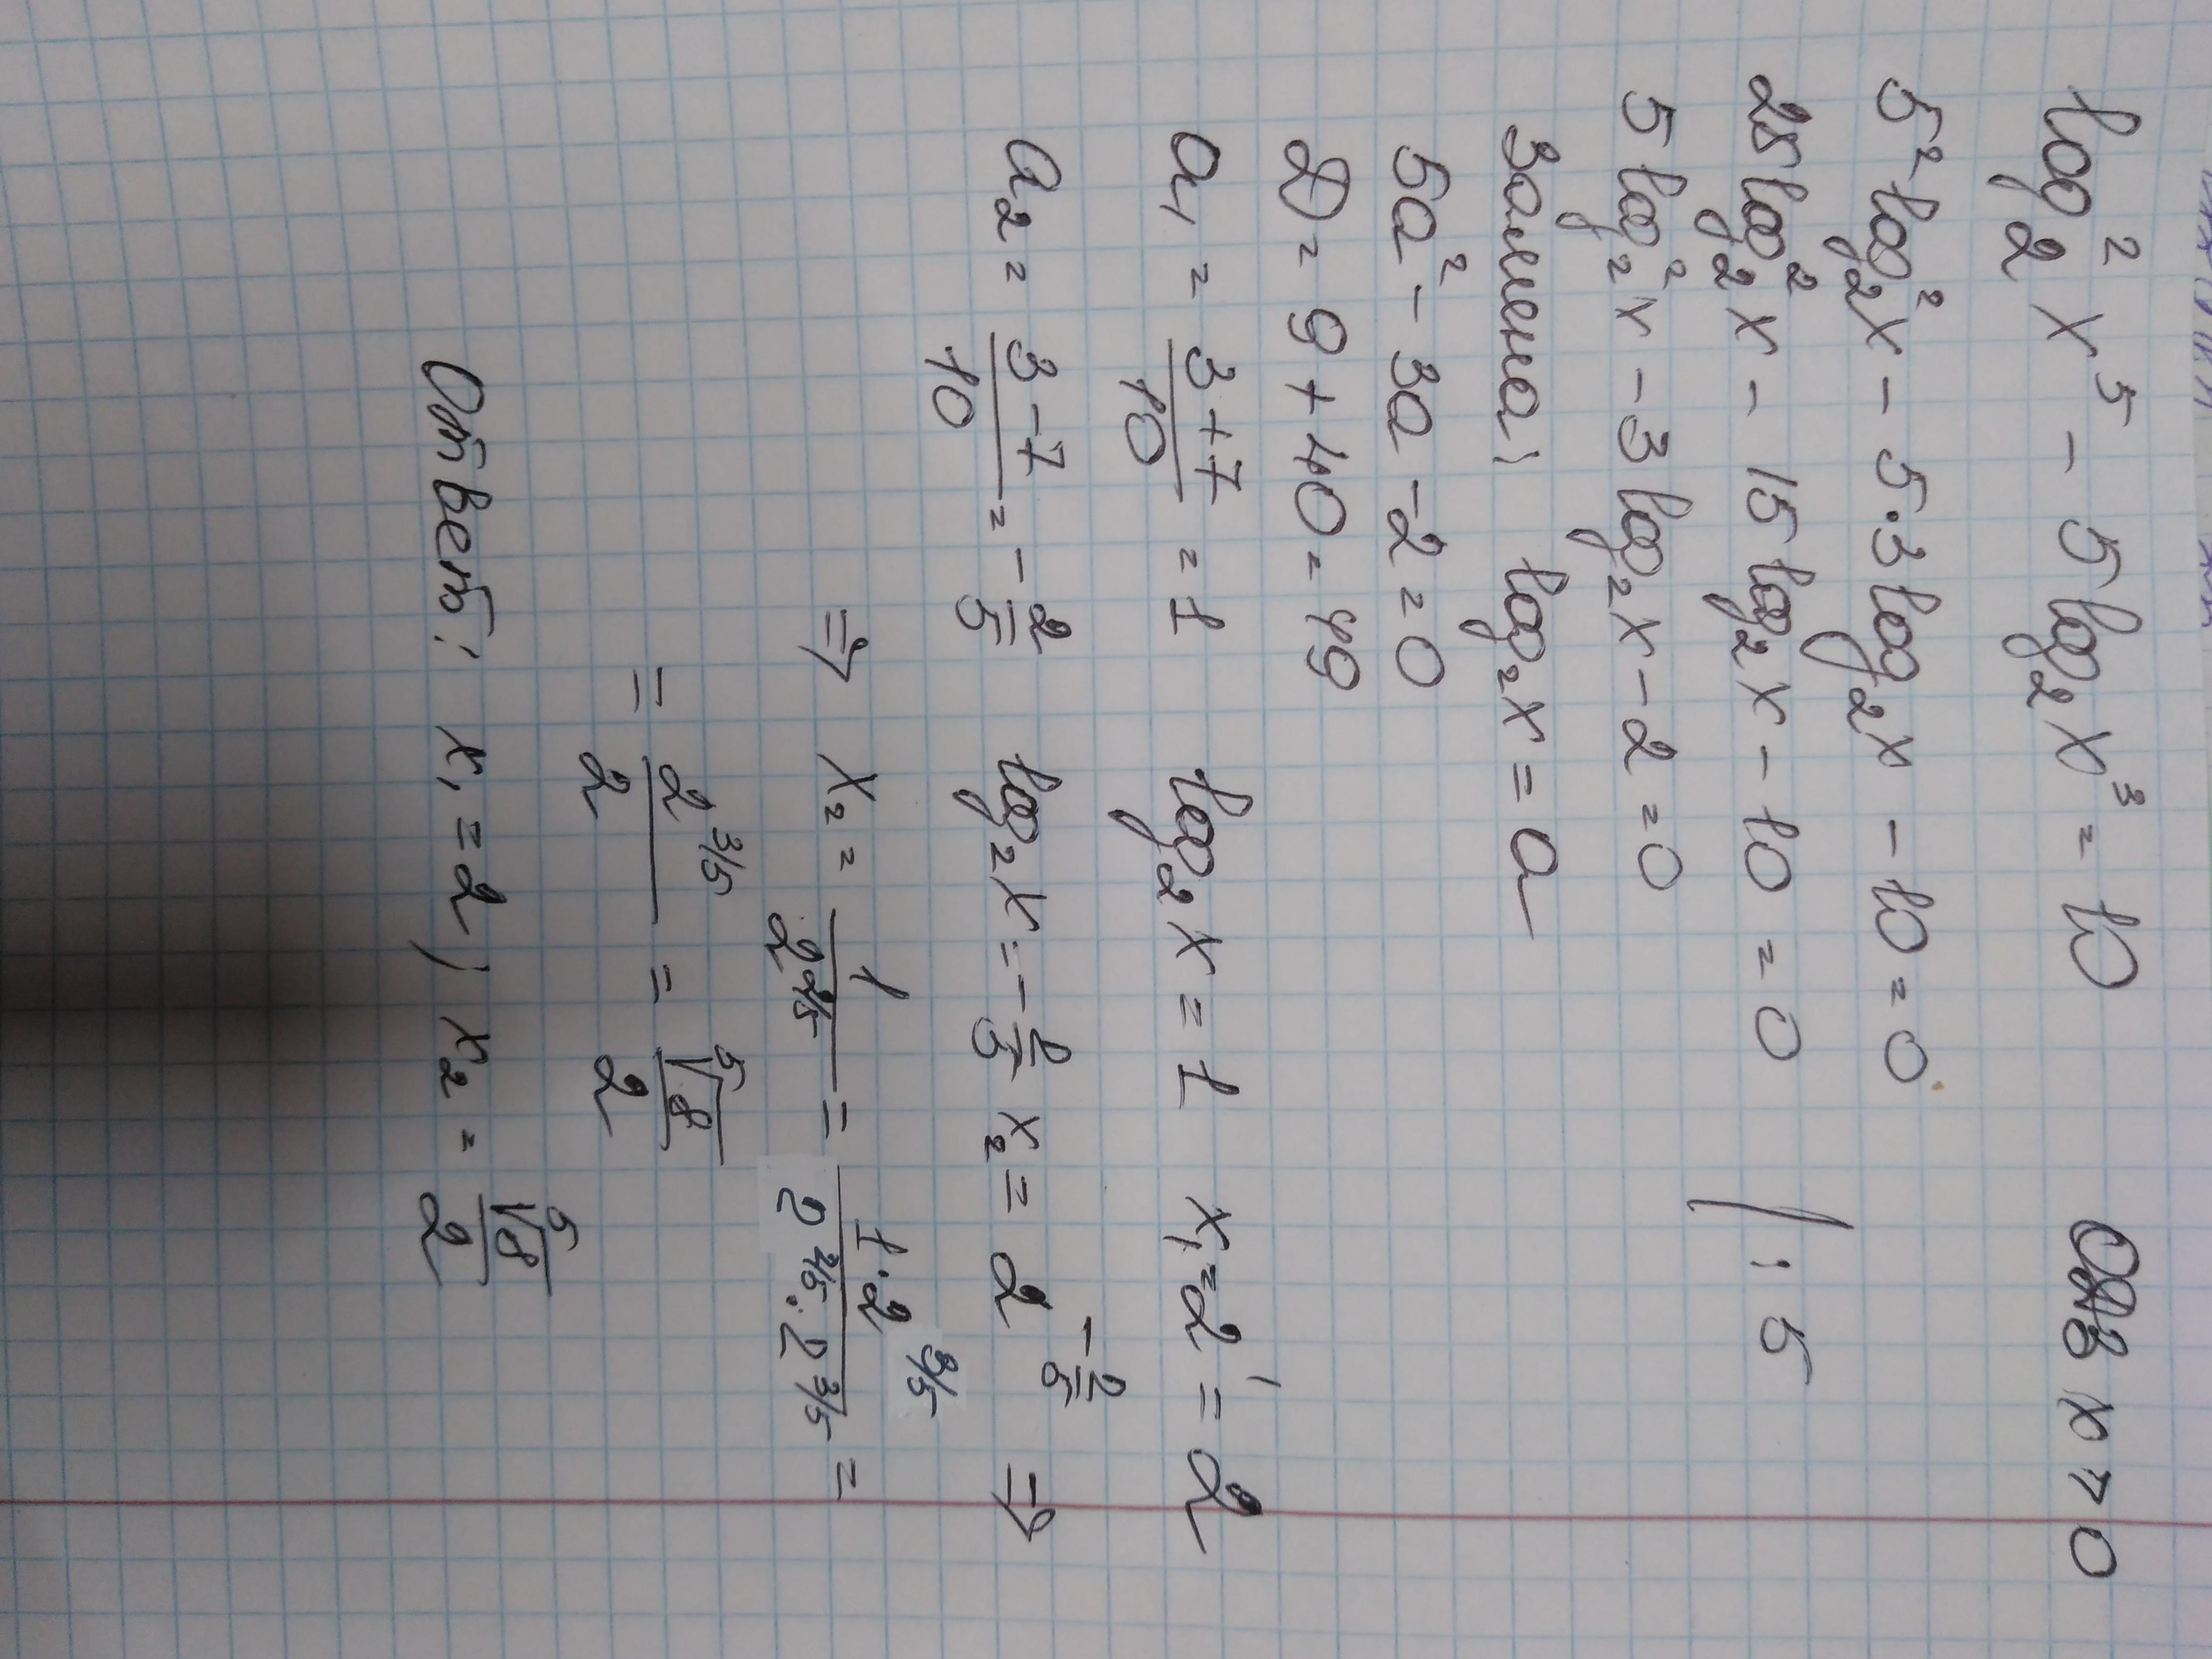 log₂² x⁵ - 5 log₂ x³ = 10 ОДЗ x > 0
5² log₂² x - 5·3 log₂ x - 10 = 0
25 log₂² x - 15 log₂ x - 10 = 0 | : 5
5 log₂² x - 3 log₂ x - 2 = 0
Замена: log₂ x = a
5a² - 3a - 2 = 0
D = 9 + 40 = 49
a₁ = (3+7)/10 = 1 log₂ x = 1 x₁ = 2¹ = 2
a₂ = (3-7)/10 = -2/5 log₂ x = -2/5 x₂ = 2^(-2/5) =>
=> x₂ = 1/2^(2/5) = (1·2^(3/5))/(2^(2/5)·2^(3/5)) =
= 2^(3/5)/2 = ⁵√8/2
Ответ: x₁ = 2; x₂ = ⁵√8/2